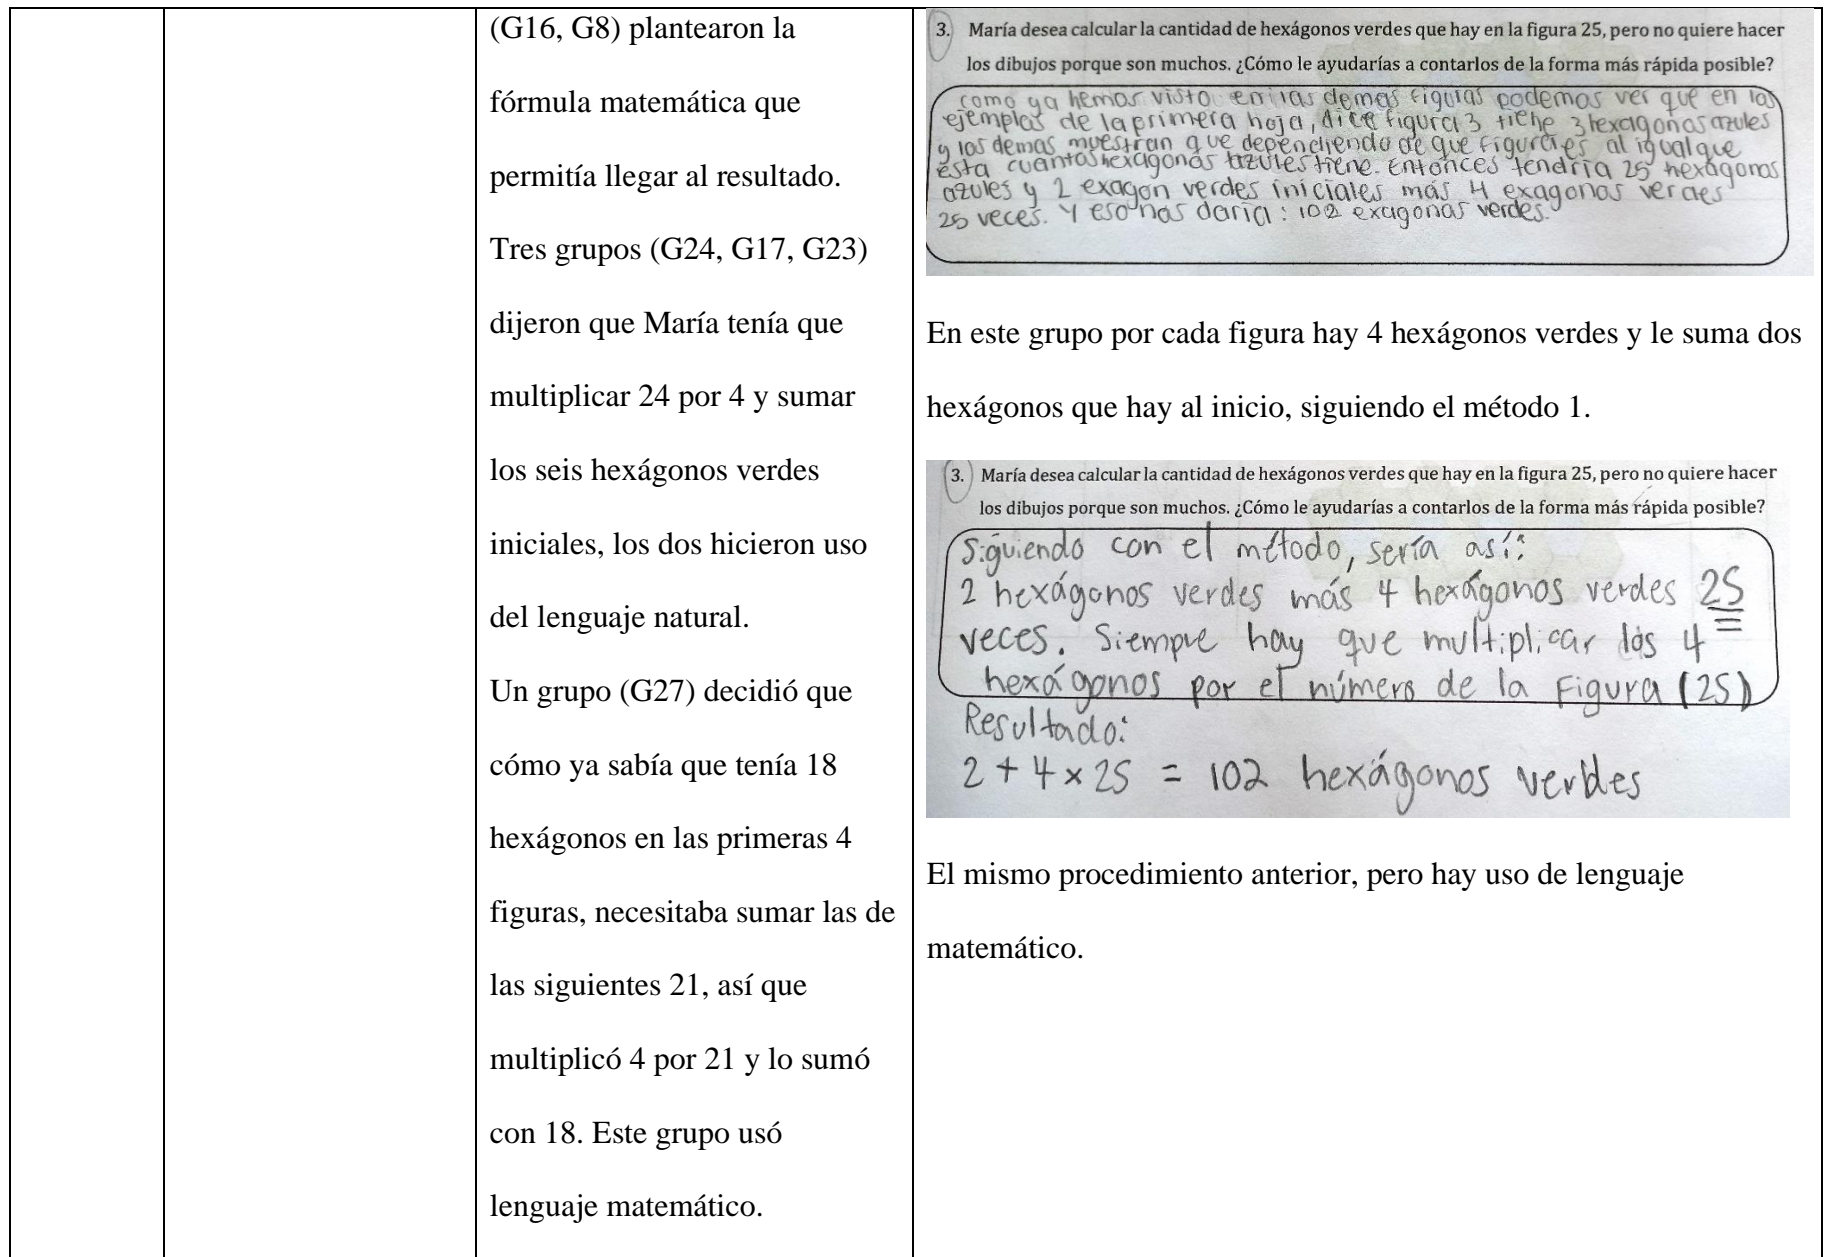 (G16, G8) plantearon la
fórmula matemática que
permitía llegar al resultado.
Tres grupos (G24, G17, G23)
dijeron que María tenía que
multiplicar 24 por 4 y sumar
los seis hexágonos verdes
iniciales, los dos hicieron uso
del lenguaje natural.
Un grupo (G27) decidió que
cómo ya sabía que tenía 18
hexágonos en las primeras 4
figuras, necesitaba sumar las de
las siguientes 21, así que
multiplicó 4 por 21 y lo sumó
con 18. Este grupo usó
lenguaje matemático.
3. María desea calcular la cantidad de hexágonos verdes que hay en la figura 25, pero no quiere hacer
los dibujos porque son muchos. ¿Cómo le ayudarías a contarlos de la forma más rápida posible?
como ya hemos visto en las demas figuras podemos ver que en los
ejemplos de la primera hoja, dice figura 3 tiene 3 hexagonos azules
y los demas muestran que dependiendo de que figura es al igual que
esta cuantos hexagonos azules tiene. Entonces tendría 25 hexágonos
azules y 2 exagon verdes iniciales más 4 exagonos verdes
25 veces. Y eso nos daría: 102 exagonos verdes.
En este grupo por cada figura hay 4 hexágonos verdes y le suma dos
hexágonos que hay al inicio, siguiendo el método 1.
3. María desea calcular la cantidad de hexágonos verdes que hay en la figura 25, pero no quiere hacer
los dibujos porque son muchos. ¿Cómo le ayudarías a contarlos de la forma más rápida posible?
Siguiendo con el método, sería así:
2 hexágonos verdes más 4 hexágonos verdes 25
veces. Siempre hay que multiplicar los 4
hexágonos por el número de la Figura (25)
Resultado:
2 + 4 x 25 = 102 hexágonos verdes
El mismo procedimiento anterior, pero hay uso de lenguaje
matemático.